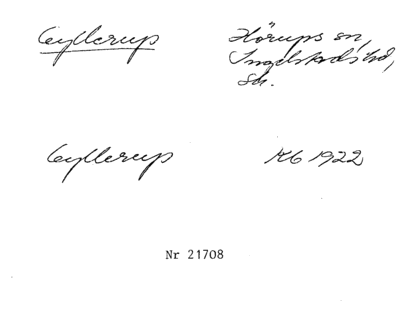 Gyllerup
Hörups sn,
Ingelstads hd,
Sk.
Gyllerup
KB 1922
Nr 21708